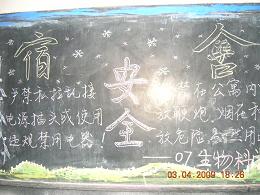 宿舍
安全
严禁私拉乱接
电源插头或使用
违规禁用电器
禁在公寓内
放鞭炮、烟
放危险
——07生物科
03.04.2009 18:26